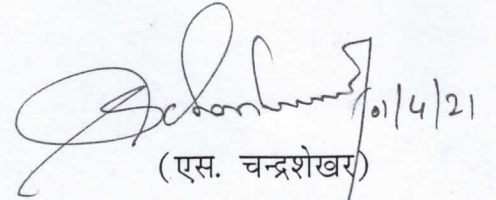 01/4/21
(एस. चन्द्रशेखर)